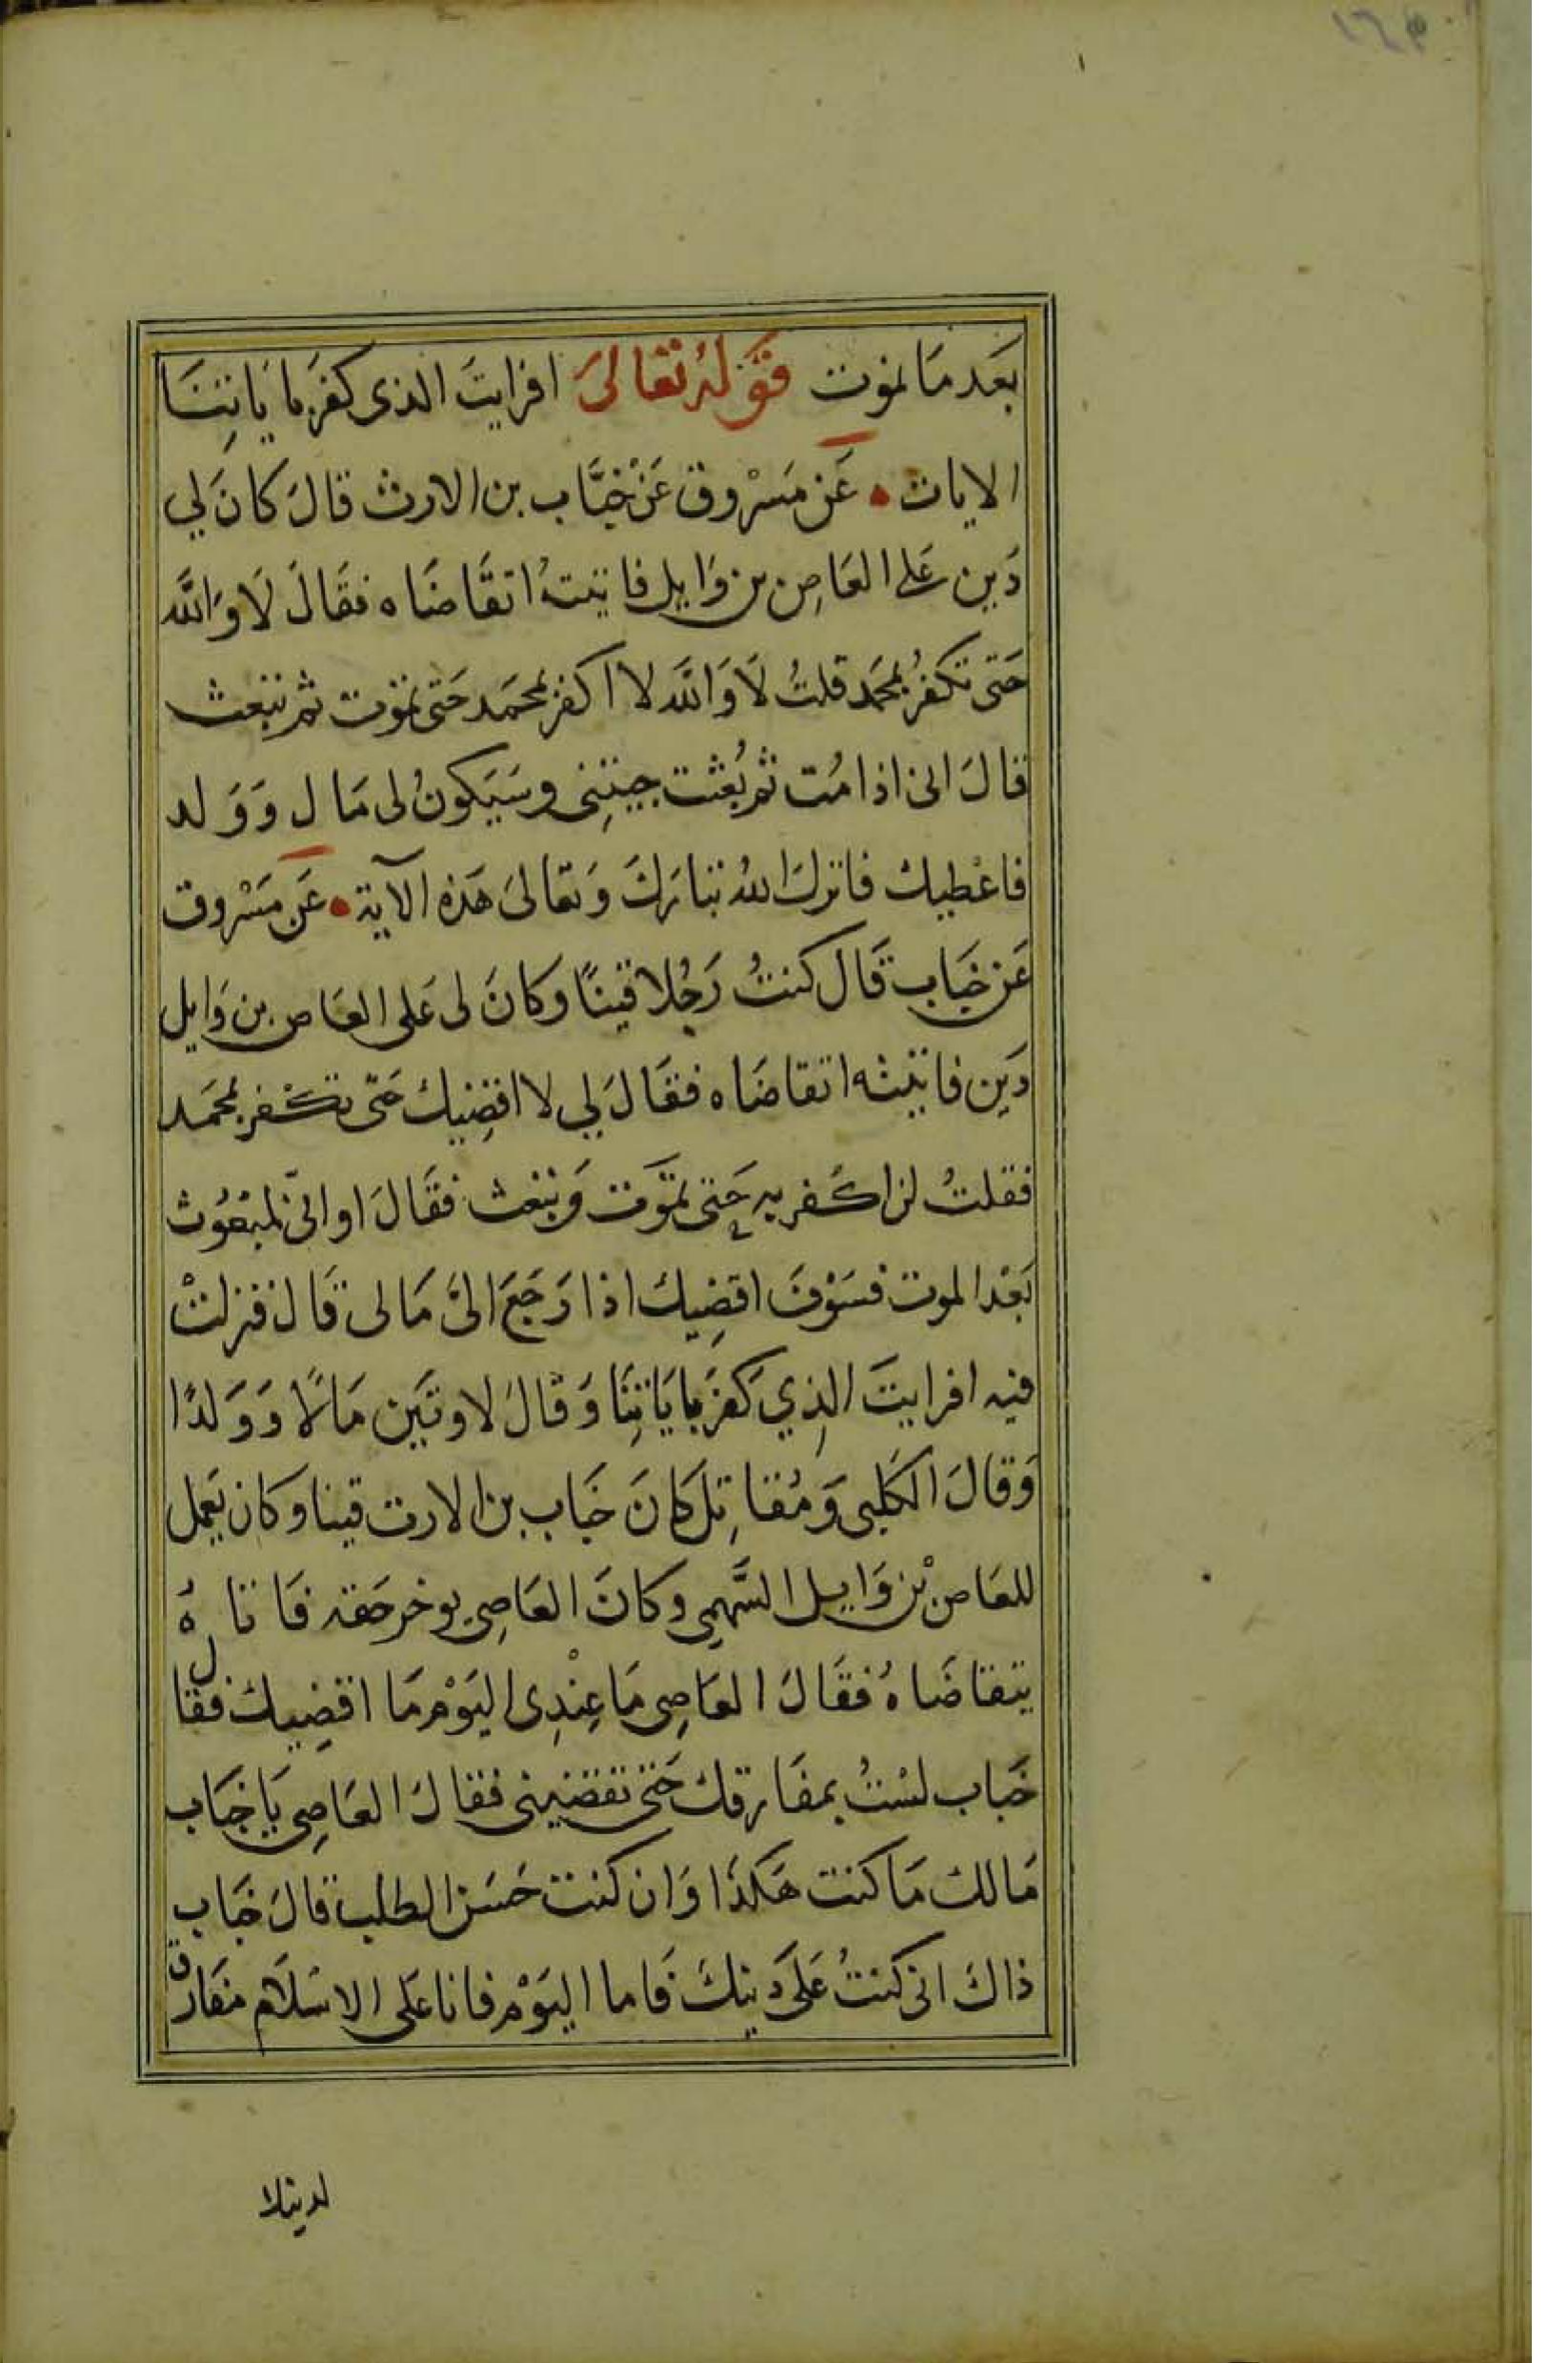 بَعَد مَا نموت قَوْلهُ تعَالىَ افرايتَ الذى كفَر بايَاتِنَا
الايات عَن مَسْروق عَنْ خبَّاب بن الارث قالَ كانَ لي
دَين عَلى العَاصِ بن وَايل فاتيتهُ اتقَاضَاه فقَالَ لَا وَاللَّه
حَتى تكفُر بمحَمد قلتُ لَا وَاللَّه لا اكفر بمحمَد حَتى تموت ثم تبعث
قالَ انى اذا مُت ثم بُعثت جيتِنى وسَيَكونُ لى مَال وَوَلد
فاعْطيك فانزلَ اللهُ تبَارَكَ وَتعَالىَ هَذه الآية عَن مَسْروق
عَن خبَاب قَال كنتُ رَجُلا قينًا وكانَ لى عَلى العَاص بن وَايل
دَين فاتيته اتقاضَاه فقَالَ لي لا اقضِيكَ حَتى تكْفر بمحمَد
فقلتُ لن اكفر به حَتى تمَوت وَتبعث فقَالَ او انّى لمبْعُوث
بَعْد الموت فسَوْفَ اقضِيكَ اذا رَجَعَ الىَّ مَالى قَال فنزلتْ
فيه افرايتَ الذِي كَفَر بايَاتِنَا وَقالَ لاوتَين مَالًا وَوَلدًا
وَقالَ الكَلبى وَمُقاتِل كانَ خَباب بن الارت قينا وكان يَعمل
للعَاص بْن وَايل السَّهمِى وكانَ العَاصِي يوخر حَقه فَاتاهُ
يتقاضَاهُ فقَالَ العَاصِى مَا عِنْدِى اليَوْم مَا اقضِيك فقال
خَباب لسْتُ بمفَارقك حَتى تقضينى فقالَ العَاصِى يَا خبَاب
مَالك مَا كنت هَكذَا وَان كنت حَسَن الطلب قالَ خبَاب
ذاكَ انى كنتُ عَلىَ دينكَ فَاما اليَوْم فانا عَلى الاسْلَام مفَارق
لدينك